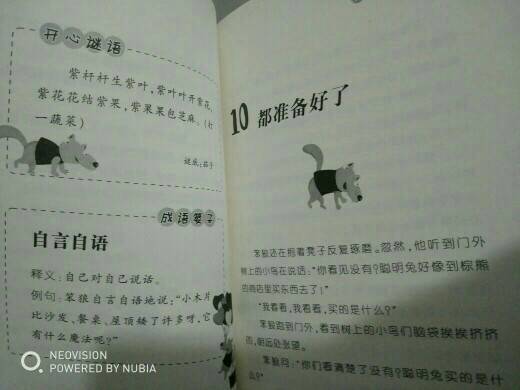 开心谜语
紫杆杆生紫叶，紫叶叶开紫花，
紫花花结紫果，紫果果包芝麻。（打
一蔬菜）
谜底：茄子
成语篓子
自言自语
释义：自己对自己说话。
例句：笨狼自言自语地说：“小木片
比沙发、餐桌、屋顶矮了许多呀，它
有什么魔法呢？”
10 都准备好了
笨狼还在抱着凳子反复琢磨。忽然，他听到门外
树上的小鸟在说话：“你看见没有？聪明兔好像到棕熊
的商店里买东西去了！”
“我看看，我看看，买的是什么？”
笨狼跑到门外，看到树上的小鸟们脑袋挨挨挤挤
的，朝远处张望。
笨狼问：“你们看清楚了没有？聪明兔买的是什
么？”
NEOVISION
POWERED BY NUBIA